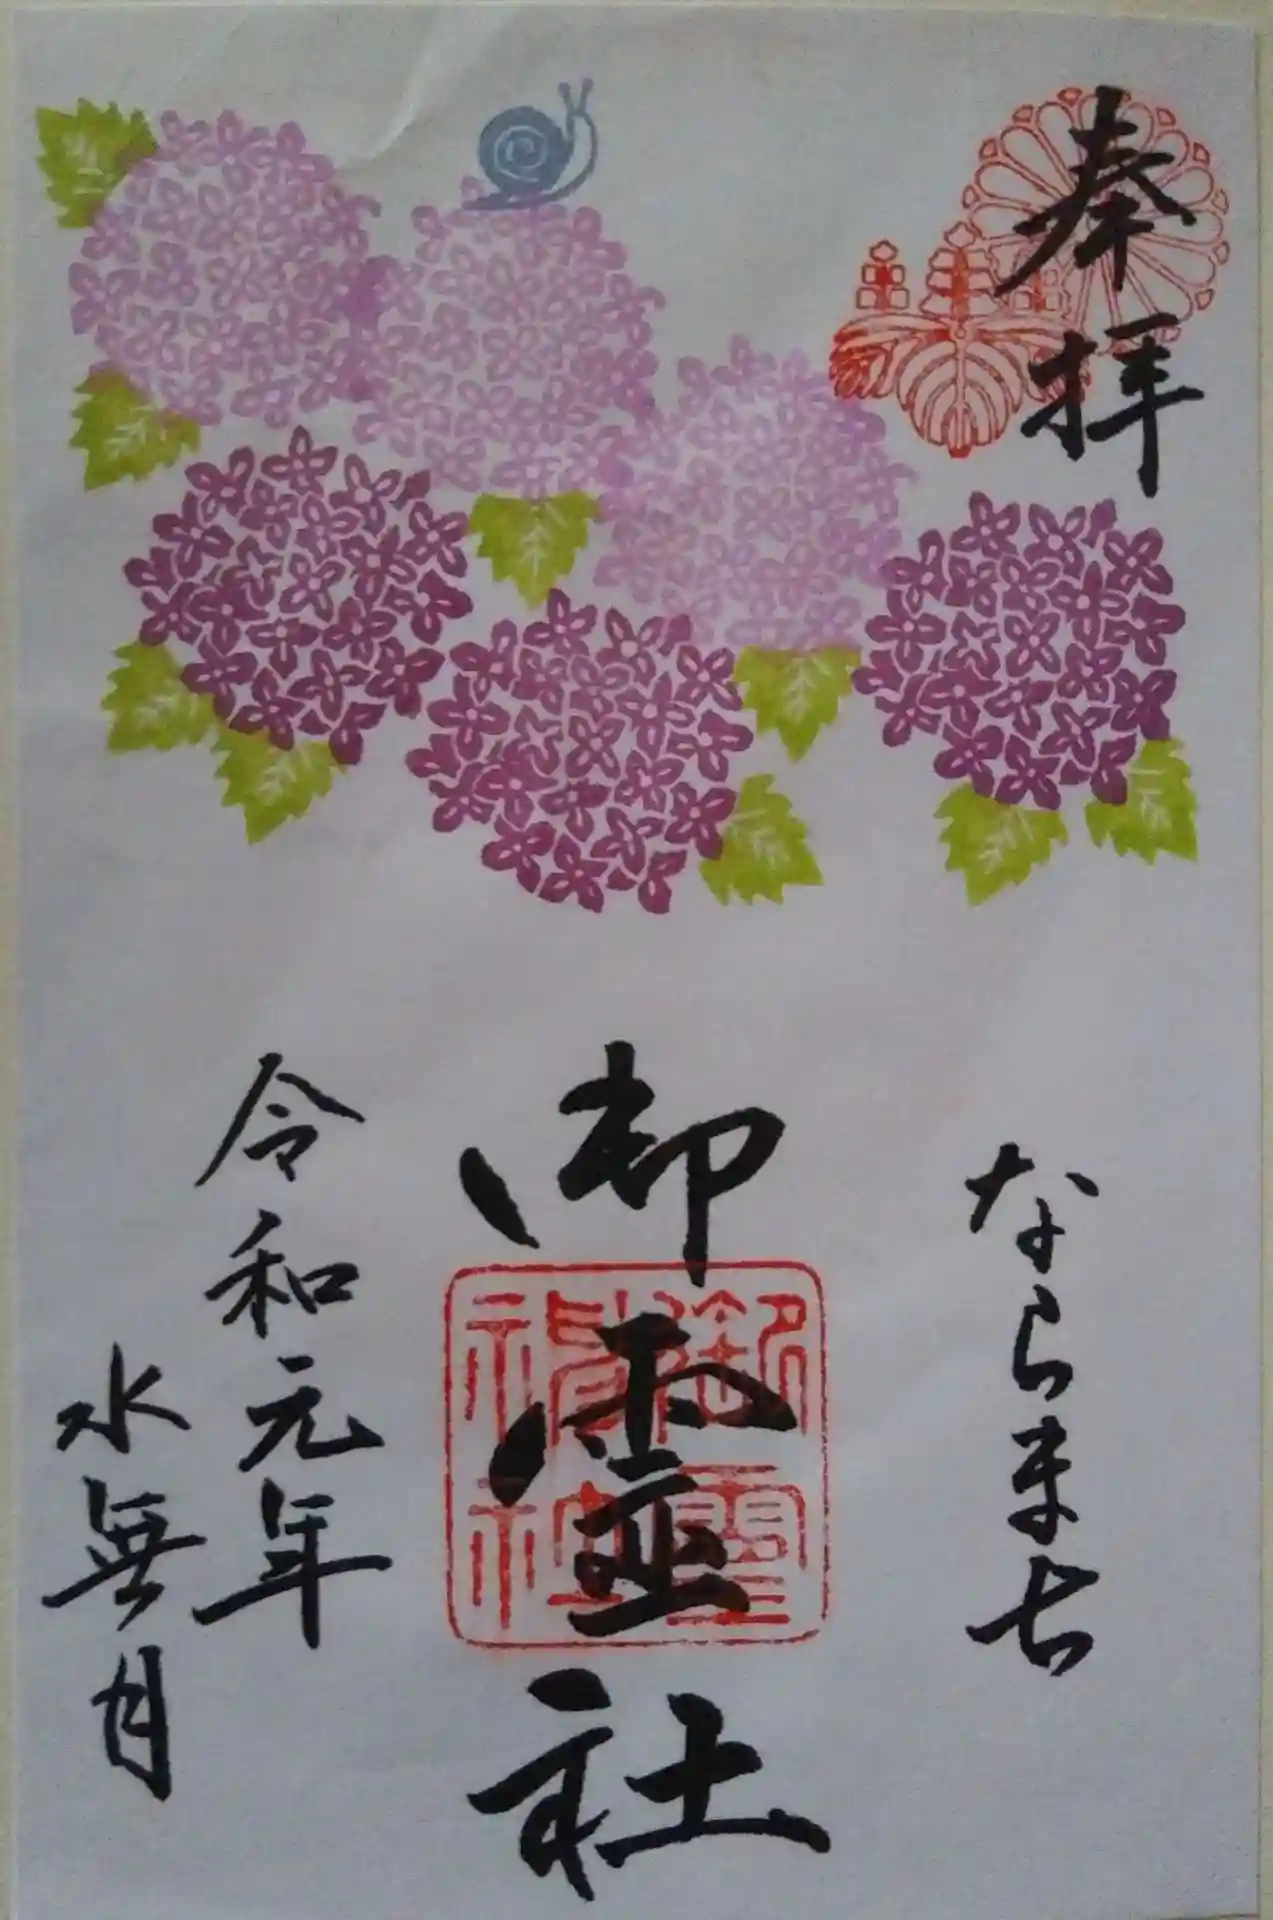 奉拝
ならまち
御霊社
御霊神社
令和元年
水無月